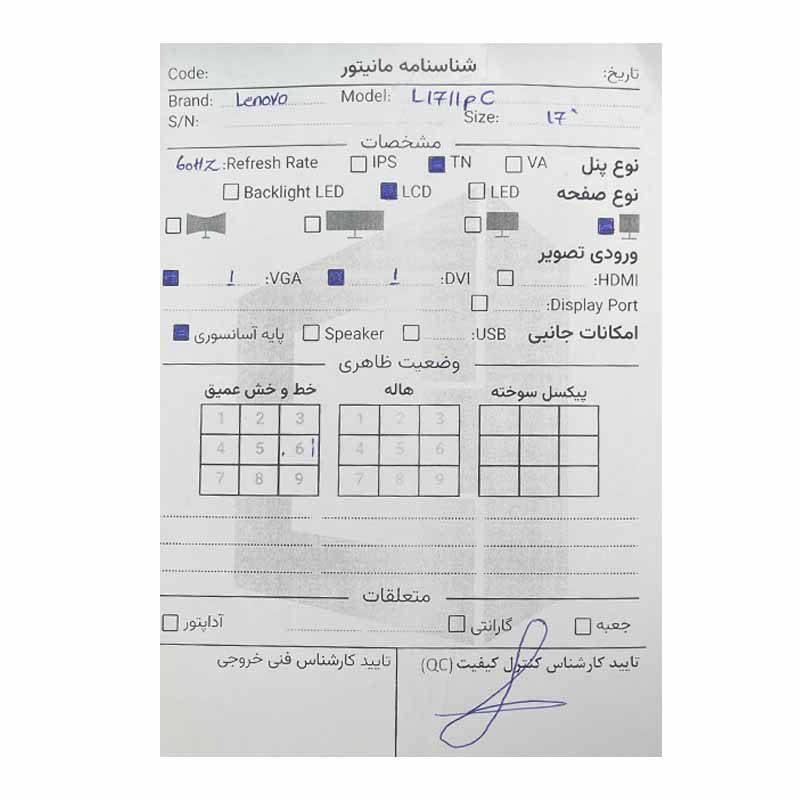 شناسنامه مانیتور
تاریخ: Code:
Brand: Lenovo Model: L1711pC
S/N: Size: 17"
مشخصات
نوع پنل VA TN IPS Refresh Rate: 60HZ
نوع صفحه LED LCD Backlight LED
ورودی تصویر
HDMI: DVI: 1 VGA: 1
Display Port:
امکانات جانبی USB: Speaker پایه آسانسوری
وضعیت ظاهری
پیکسل سوخته هاله خط و خش عمیق
1 2 3 1 2 3
4 5 6 4 5 6
7 8 9 7 8 9
متعلقات
جعبه گارانتی آداپتور
تایید کارشناس کنترل کیفیت (QC) تایید کارشناس فنی خروجی